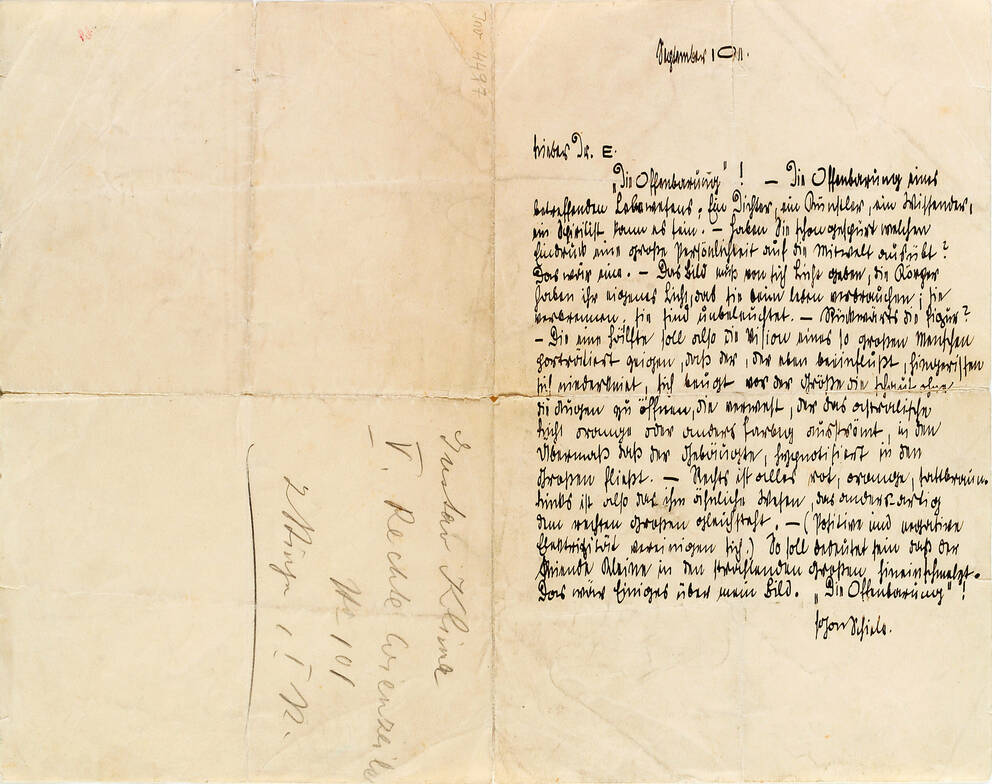 Inv 4497
September 1911.
Lieber Dr. E.
„Die Offenbarung"! — Die Offenbarung eines
betreffenden Lebewesens; Ein Dichter, ein Künstler, ein Wissender,
ein Spiritist kann es sein. — Haben Sie schon gespürt welchen
Eindruck eine große Persönlichkeit auf die Mitwelt ausübt?
Das wär eine. — Das Bild muß von sich Licht geben, die Körper
haben ihr eigenes Licht, das sie beim leben verbrauchen; sie
verbrennen, sie sind unbeleuchtet. — Rückwärts die Figur?
— Die eine Hälfte soll also die Vision eines so großen Menschen
porträtiert zeigen, daß der, der eben beeinflußt, hingerissen
sich niederkniet, sich beugt vor der Größe die schaut ohne
die Augen zu öffnen, die verwest, der das astralische
Licht orange oder anders farbig ausströmt, in den
Übermaß daß der Gebeugte, hypnotisiert in den
Großen fließt. — Rechts ist alles rot, orange, sattbraun.
Links ist also das ihm ähnliche Wesen, das anders-artig
dem rechten Großen gleichsteht. — (Positive und negative
Elektrizität vereinigen sich.) So soll bedeutet sein daß der
kniende Kleine in den strahlenden Großen hineinschmelzt.
Das wär Einiges über mein Bild. „Die Offenbarung"!
Schiele.
Gustav
V. Rechte Wienzeile
Nr 101